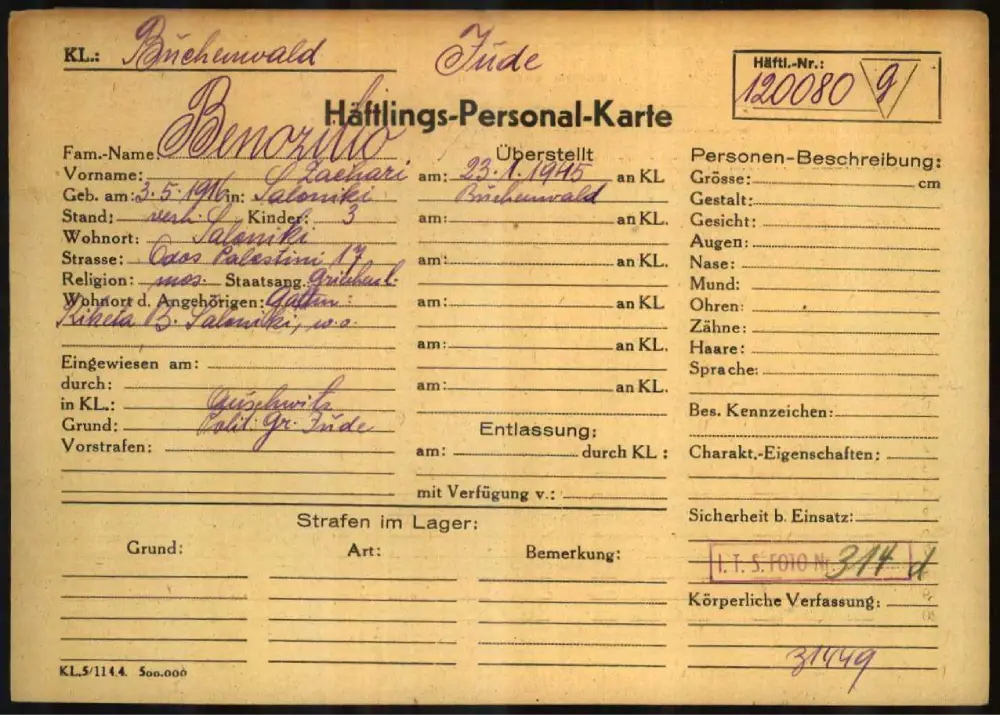 KL.: Buchenwald Jude
Häftl.-Nr.:
120080 g
Häftlings-Personal-Karte
Fam.-Name: Benozilio
Vorname: Zachari
Geb. am: 3.5.1916 in: Saloniki
Stand: verh. Kinder: 3
Wohnort: Saloniki
Strasse: Odos Palestini 17
Religion: mos. Staatsang.
Wohnort d. Angehörigen: Gattin:
B. Saloniki, w.o.
Eingewiesen am:
durch:
in KL.: Auschwitz
Grund: Polit. Gr. Jude
Vorstrafen:
Überstellt
am: 23.1.1945 an KL
Buchenwald
am: an KL.
am: an KL.
am: an KL
am: an KL.
am: an KL.
Entlassung:
am: durch KL:
mit Verfügung v.:
Personen-Beschreibung:
Grösse: cm
Gestalt:
Gesicht:
Augen:
Nase:
Mund:
Ohren:
Zähne:
Haare:
Sprache:
Bes. Kennzeichen:
Charakt.-Eigenschaften:
Sicherheit b. Einsatz:
I. T. S. FOTO Nr. 314 d
Körperliche Verfassung:
31449
Strafen im Lager:
Grund: Art: Bemerkung:
KL.5/11 4.4. 500.000